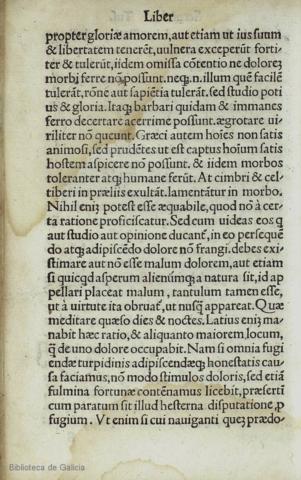 Liber
propter gloriæ amorem, aut etiam ut ius suum
& libertatem tenerēt, uulnera exceperūt forti-
ter & tulerūt, iidem omissa cōtentio ne dolorē
morbi ferre nō possunt. neq;. n. illum quē facilē
tulerāt, rōne aut sapiētia tulerāt. sed studio poti
us & gloria. Itaq; barbari quidam & immanes
ferro decertare acerrime possunt. ægrotare ui-
riliter nō queunt. Græci autem hoīes non satis
animosi, sed prudētes ut est captus hoīum satis
hostem aspicere nō possunt. & iidem morbos
toleranter atq; humane ferūt. At cimbri & cel-
tiberi in præliis exultāt. lamentātur in morbo.
Nihil enī potest esse æquabile, quod nō à cer-
ta ratione proficiscatur. Sed cum uideas eos q
aut studio aut opinione ducātˀ, in eo persequē
do atq; adipiscēdo dolore nō frangi. debes exi-
stimare aut nō esse malum dolorem, aut etiam
si quicqd asperum alienūmq; a natura sit, id ap
pellari placeat malum, tantulum tamen esse,
ut à uirtute ita obruatˀ, ut nusq̄ appareat. Quæ
meditare quæso dies & noctes. Latius enī ma-
nabit hæc ratio, & aliquanto maiorem locum,
q̄ de uno dolore occupabit. Nam si omnia fugi
endæ turpidinis adipiscendæq; honestatis cau-
sa faciamus, nō modo stimulos doloris, sed etiā
fulmina fortunæ contēnamus licebit, præserti
cum paratum sit illud hesterna disputatione, p
fugium. Vt enim si cui nauiganti quem prædo-
Biblioteca de Galicia